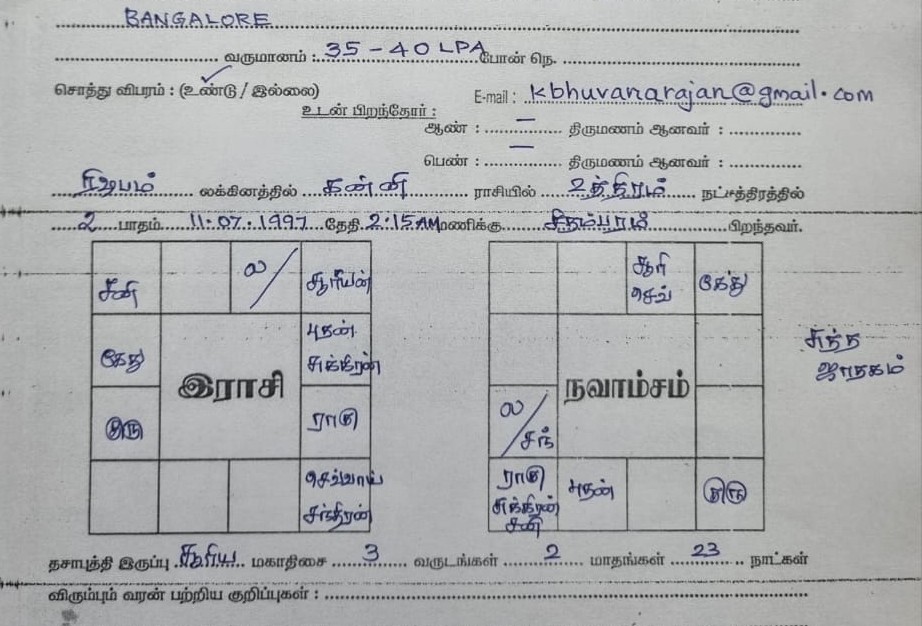 BANGALORE
வருமானம் : 35 - 40 LPA போன் நெ.
சொத்து விபரம் : (உண்டு / இல்லை) E-mail : kbhuvanarajan@gmail.com
உடன் பிறந்தோர் :
ஆண் : — திருமணம் ஆனவர் :
பெண் : — திருமணம் ஆனவர் :
ரிஷபம் லக்கினத்தில் கன்னி ராசியில் உத்திரம் நட்சத்திரத்தில்
2 பாதம் 11.07.1997 தேதி 2:15AM மணிக்கு சிதம்பரம் பிறந்தவர்.
சனி ல/ சூரியன் சூரி செவ் கேது
கேது புதன் சுக்கிரன் சுத்த ஜாதகம்
இராசி நவாம்சம்
குரு ராகு ல/சந்
செவ்வாய் சந்திரன் ராகு சுக்கிரன் சனி புதன் குரு
தசாபுத்தி இருப்பு சூரிய மகாதிசை 3 வருடங்கள் 2 மாதங்கள் 23 நாட்கள்
விரும்பும் வரன் பற்றிய குறிப்புகள் :